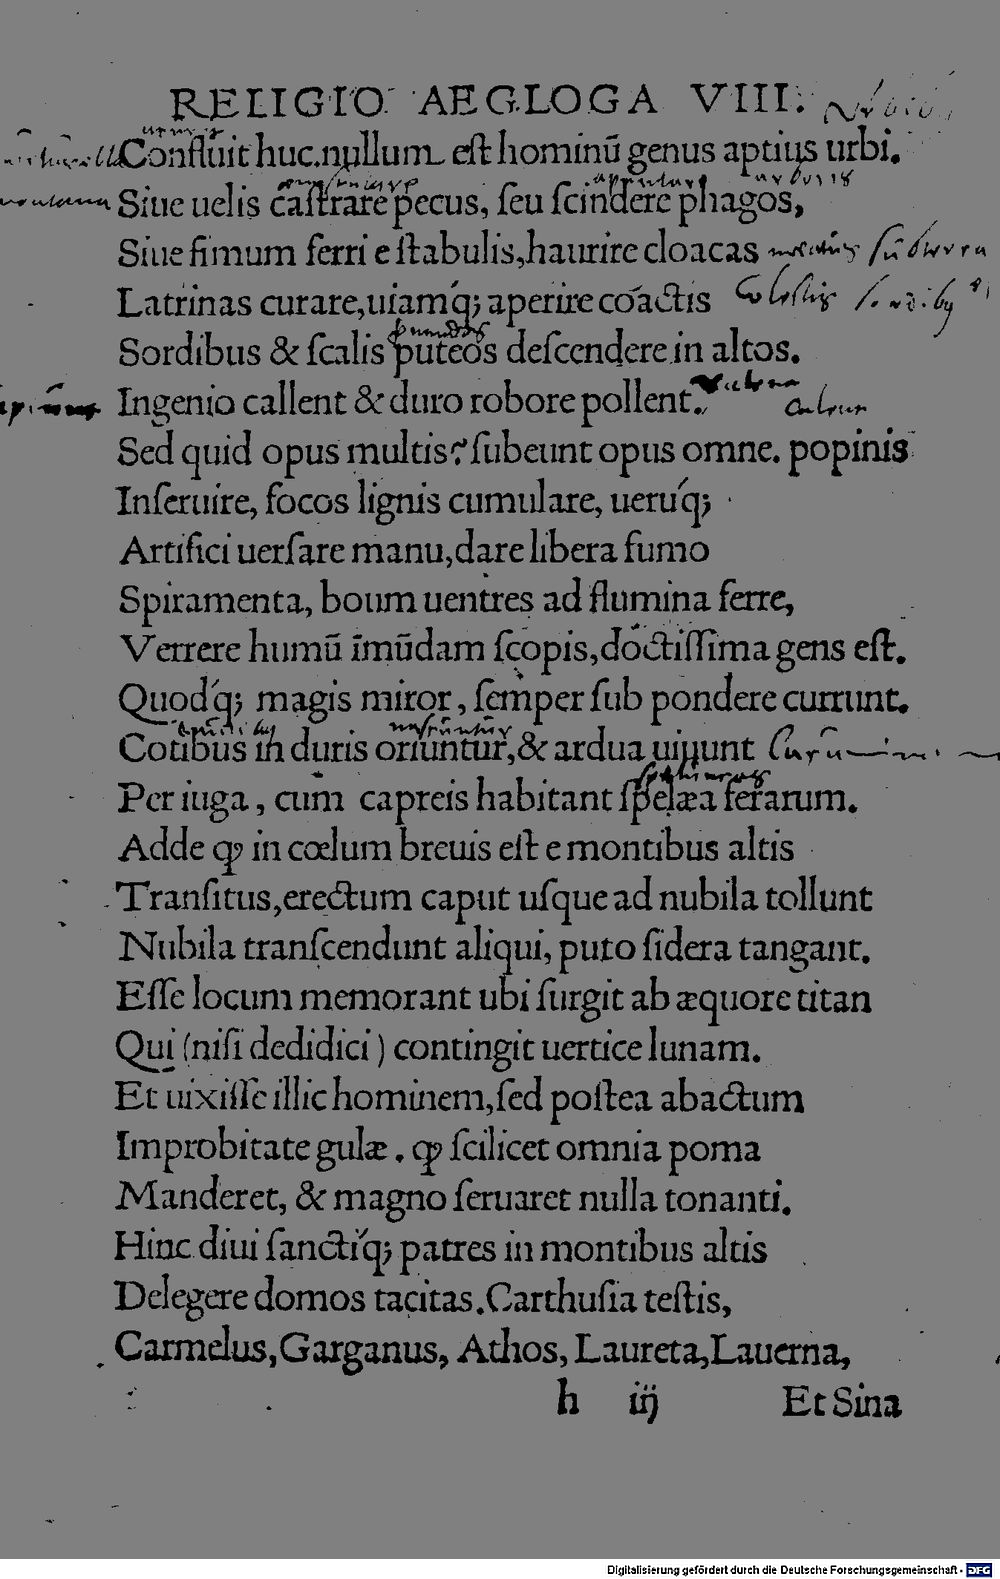 RELIGIO AEGLOGA VIII.
Confluit huc. nullum est hominū genus aptius urbi.
Siue uelis castrare pecus, seu scindere phagos,
Siue fimum ferri e stabulis, haurire cloacas
Latrinas curare, uiamq́; aperire coactis
Sordibus & scalis puteos descendere in altos.
Ingenio callent & duro robore pollent.
Sed quid opus multis? subeunt opus omne. popinis
Inseruire, focos lignis cumulare, ueruq́;
Artifici uersare manu, dare libera fumo
Spiramenta, boum uentres ad flumina ferre,
Verrere humū īmūdam scopis, doctissima gens est.
Quodq́; magis miror, semper sub pondere currunt.
Cotibus in duris oriuntur, & ardua uiuunt
Per iuga, cum capreis habitant spelæa ferarum.
Adde ꝙ in cœlum breuis est e montibus altis
Transitus, erectum caput usque ad nubila tollunt
Nubila transcendunt aliqui, puto sidera tangant.
Esse locum memorant ubi surgit ab æquore titan
Qui (nisi dedidici) contingit uertice lunam.
Et uixisse illic hominem, sed postea abactum
Improbitate gulæ. ꝙ scilicet omnia poma
Manderet, & magno seruaret nulla tonanti.
Hinc diui sanctiq́; patres in montibus altis
Delegere domos tacitas. Carthusia testis,
Carmelus, Garganus, Athos, Laureta, Lauerna,
h iij Et Sina
Digitalisierung gefördert durch die Deutsche Forschungsgemeinschaft - DFG